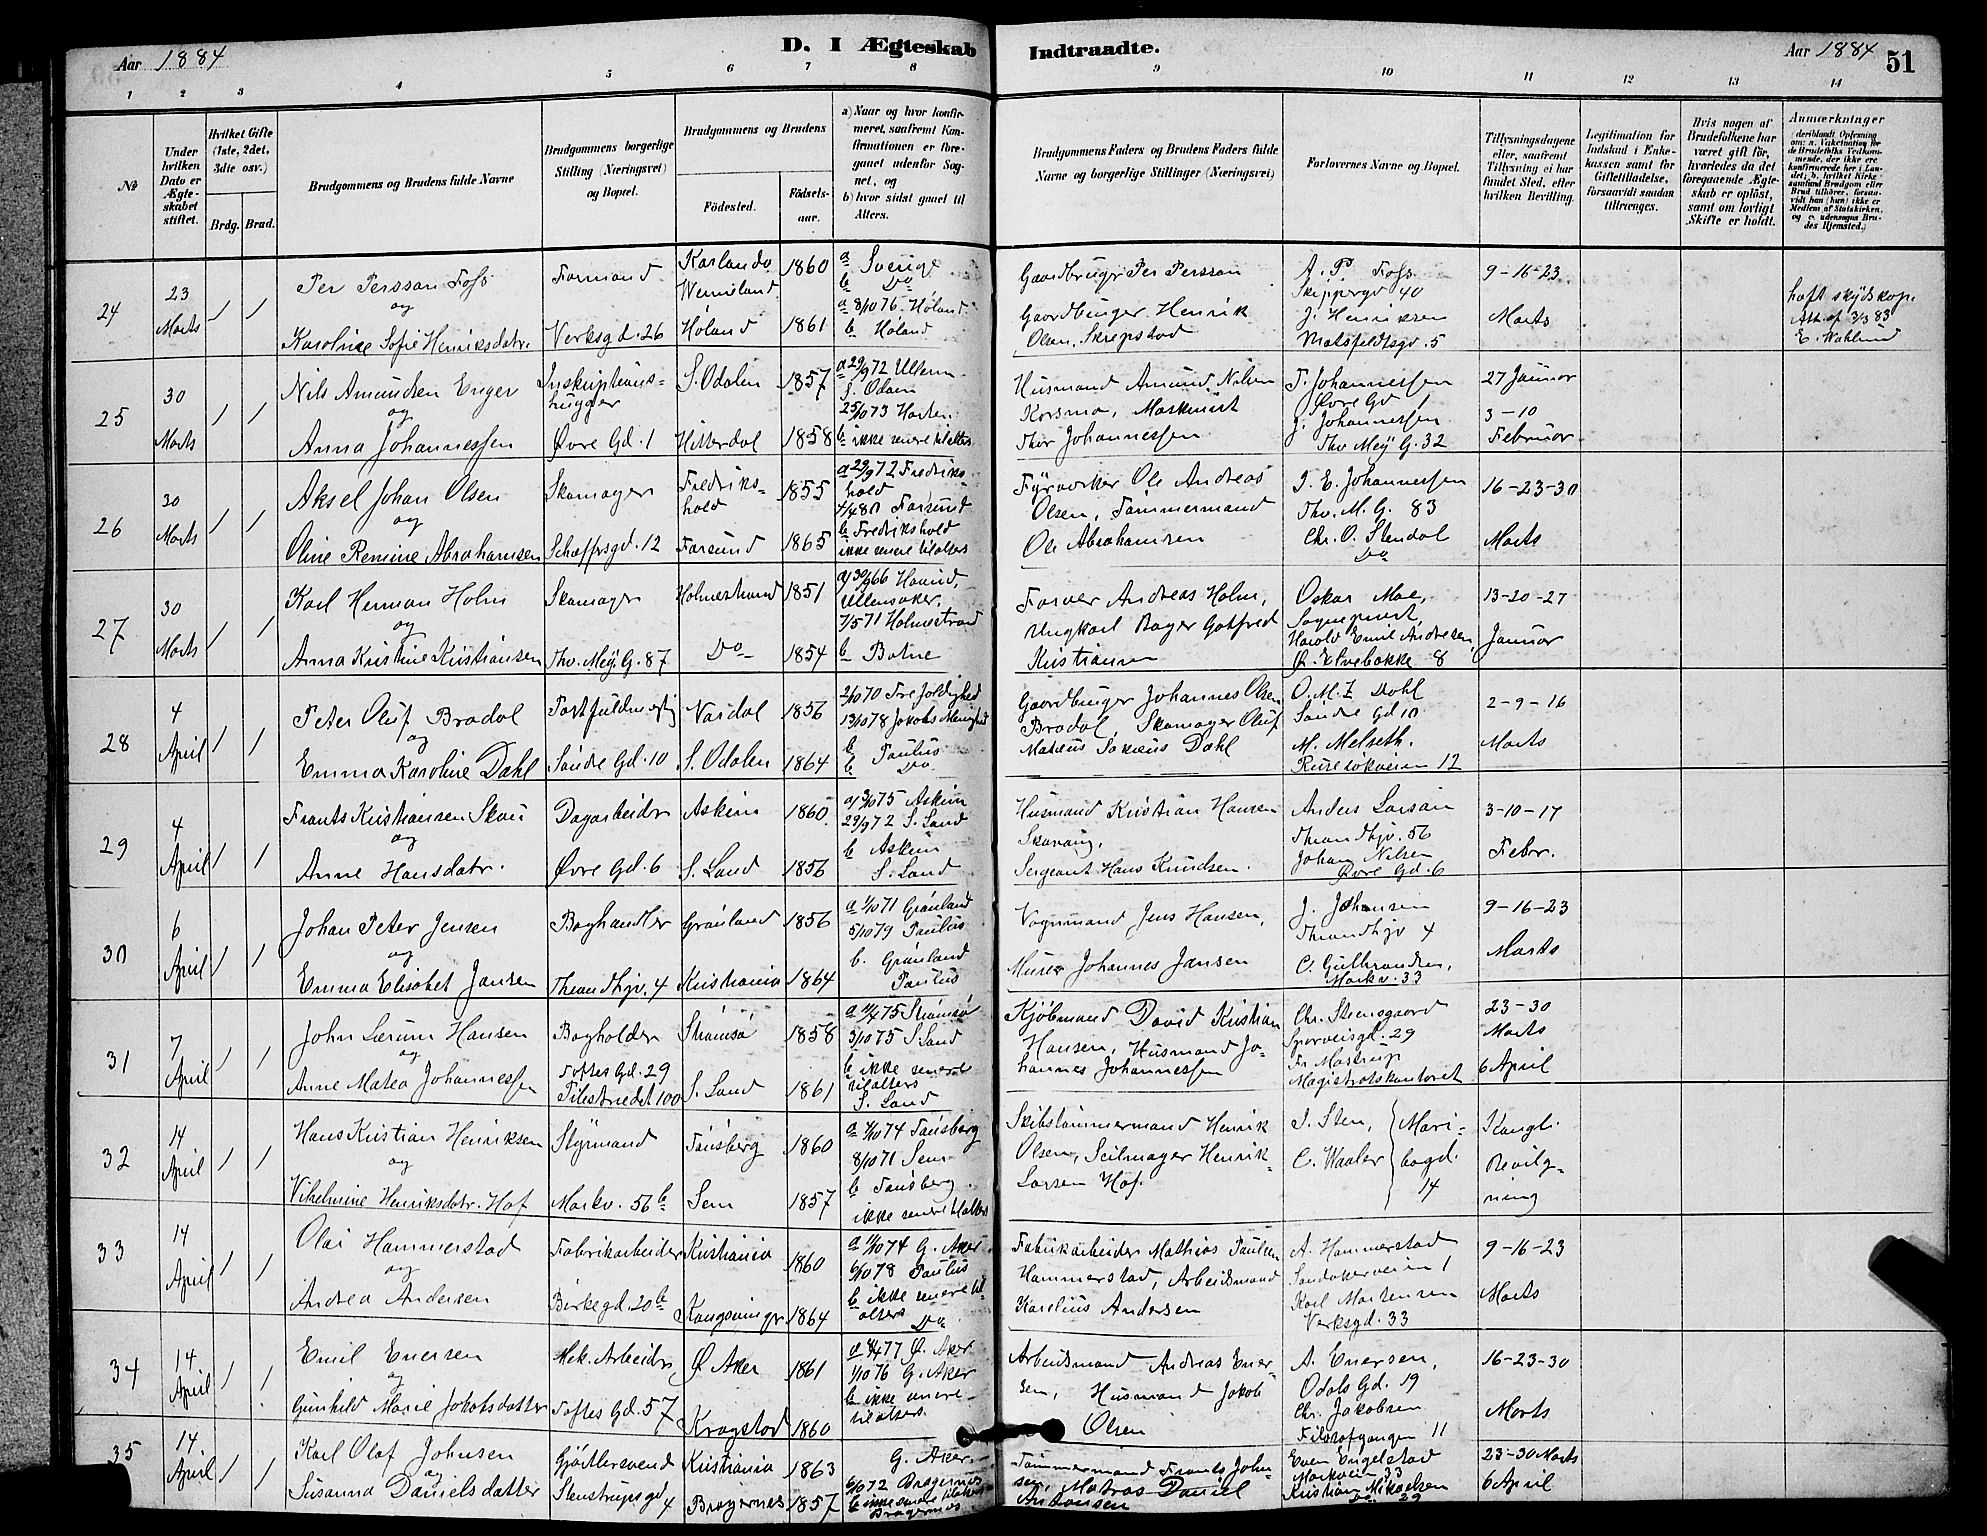 Aar 1884
D. I Ægteskab Indtraadte.
Aar 1884
51
1 2 3 4 5 6 7 8 9 10 11 12 13 14
No
Under hvilken Dato er Ægteskabet stiftet.
Hvilket Gifte (1ste, 2det, 3die osv.)
Brdg. Brud.
Brudgommens og Brudens fulde Navne
Brudgommens borgerlige Stilling (Næringsvei) og Bopæl.
Brudgommens og Brudens
Födested.
Födselsaar.
a) Naar og hvor konfirmeret, saafremt Konfirmationen er foregaaet udenfor Sognet, og
b) hvor sidst gaaet til Alters.
Brudgommens Faders og Brudens Faders fulde Navne og borgerlige Stillinger (Næringsvei)
Forlovernes Navne og Bopæl.
Tillysningsdagene eller, saafremt Tillysning ei har fundet Sted, efter hvilken Bevilling.
Legitimation for Indskud i Enkekassen samt for Giftetilladelse, forsaavidt saadan tiltrænges.
Hvis nogen af Brudefolkene har været gift før, hvorledes da det foregaaende Ægteskab er oplöst, samt om lovligt Skifte er holdt.
Anmærkninger
24
23 Marts
1 1
Per Persson Foss
og
Karoline Sofie Henriksdatr.
Formand
Verksgd. 26
Wermland
Høland
1860
1861
a Sverige
b Do
a 8/10 76 Høland
b Høland
Gaardbruger Per Persson
Gaardbruger Henrik
Olsen, Skrepstad
A. P. Foss
Skippergd 40
J. Henriksen
Motzfeldtsgd. 5
9-16-23
Marts
haft skydskop.
Att. af 3/3 83
E. Wahlund
25
30 Marts
1 1
Nils Amundsen Enger
og
Anna Johannessen
Inskriptions-
hugger
Øvre Gd. 1
S. Odalen
Hitterdal
1857
1858
a 29/9 72 Ullern
S. Odalen
25/10 73 Horten
b ikke senere tilalters
Husmand Amund Nilsen
Korsmo, Maskinist
Thor Johannessen
T. Johannessen
Øvre Gd 1
J. Johannessen
Thv. Mey G. 32
27 Januar
3-10
Februar
26
30 Marts
1 1
Aksel Johan Olsen
og
Oline Remine Abrahamsen
Skomager
Schæffersgd. 12
Fredriks-
hald
Farsund
1855
1865
a 29/9 72 Fredriks-
hald
4/4 80 Farsund
b Fredrikshald
ikke senere tilalters
Fyrvorker Ole Andreas
Olsen, Tømmermand
Ole Abrahamsen
J. E. Johannessen
Thv. M. G. 83
Chr. O. Stendal
Do
16-23-30
Marts
27
30 Marts
1 1
Karl Herman Holm
og
Anna Kristine Kristiansen
Skomager
Thv. Mey G. 87
Holmestrand
Do
1851
1854
a 30/9 66 Hovind,
Ullensaker.
7/5 71 Holmestrand
b Botne
Farver Andreas Holm,
Ungkarl Bager Gotfred
Kristiansen
Oskar Moe,
Sogneprest
Harald Emil Andresen
Ø. Elvebakke 8
13-20-27
Januar
28
4 April
1 1
Peter Oluf Bradal
og
Emma Karoline Dahl
Postfuldmegtig
Søndre Gd. 10
Nordal
S. Odalen
1856
1864
2/10 70 Trefoldighed
13/10 78 Jakobs Menighed
b Paulus
b Do
Gaardbruger Johannes Olsen
Bradal Skomager Oluf
Mateus Dahl
O. M. Z. Dahl
Søndre Gd 10
M. Melseth.
12
2-9-16
Marts
29
4 April
1 1
Frants Kristiansen Skau
og
Anne Hansdatr.
Dagarbeider
Øvre Gd. 6
Askim
S. Land
1860
1856
a 3/10 75 Askim
29/9 72 S. Land
b Askim
S. Land
Husmand Kristian Hansen
Skavang,
Sergeant Hans Knudsen.
Anders Larsen
Throndhjv. 56
Johan Nilsen
Øvre Gd. 6
3-10-17
Febr.
30
6 April
1 1
Johan Peter Jensen
og
Emma Elisabet Jansen
Boghandler
Throndhjv. 4
Grønland
Kristiania
1856
1864
a 1/10 71 Grønland
5/10 79 Paulus
b. Grønland
Paulus
Vognmand Jens Hansen,
Murer Johannes Jansen
J. Johansen
Throndhjv 4
C. Gulbrandsen,
Markv. 33
9-16-23
Marts
31
7 April
1 1
John Lærum Hansen
og
Anne Matea Johannessen
Bogholder
Toftes Gd. 29
Pilestrædet 100
Strømsø
S. Land
1858
1861
a 11/4 75 Strømsø
3/10 75 S. Land
b ikke senere
tilalters
S. Land
Kjøbmand David Kristian
Hansen, Husmand Jo-
hannes Johannessen
Chr. Stensgaard
Sporveisgd. 29
Fr. Mastrup
Magistratskontoret
23-30
Marts
6 April
32
14 April
1 1
Hans Kristian Henriksen
og
Vilhelmine Henriksdatr. Hof
Styrmand
Markv. 56 b
Tønsberg
Sem
1860
1857
a 4/10 74 Tønsberg
8/10 71 Sem
b Tønsberg.
ikke senere tilalters
Skibstømmermand Henrik
Olsen, Seilmager Henrik
Larsen Hof.
J. Sten,
C. Waaler
Mari-
bogd.
14
Kongl.
Bevilg-
ning
33
14 April
1 1
Olai Hammerstad
og
Andrea Andersen
Fabrikarbeider
Birkegd. 20 b
Kristiania
Kongsvinger
1860
1864
a 11/10 74 G. Aker
6/10 78 Paulus
b ikke senere til-
alters
Do
Fabrikarbeider Mathias Paulsen
Hammerstad, Arbeidsmand
Karelius Andersen
A. Hammerstad
Sandakerveien 1
Karl Mortensen
Verksgd. 33
9-16-23
Marts
34
14 April
1 1
Emil Enersen
og
Gunhild Marie Jakobsdatter
Mek. Arbeider
Toftes Gd. 57
Ø Aker
Kragstad
1861
1860
a 8/4 77 Ø. Aker
1/10 76 G. Aker
b ikke senere
tilalters
Arbeidsmand Andreas Ener-
sen, Husmand Jakob
Olsen
A. Enersen,
Odals Gd. 19
Chr. Jakobsen
Filosofgangen 11
16-23-30
Marts
35
14. April
1 1
Karl Olaf Johnsen
og
Susanna Danielsdatter
Gjørtlersvend
Stenstrupsgd 4
Kristiania
Bragernes
1863
1857
G. Aker
6/10 72 Bragernes
b ikke senere tilalters
Bragernes
Tømmermand Frants John-
sen, Matros Daniel
Antonsen
Even Engelstad
Markveien 33
Kristian Mikaelsen
Do 29
23-30 Marts
6 April